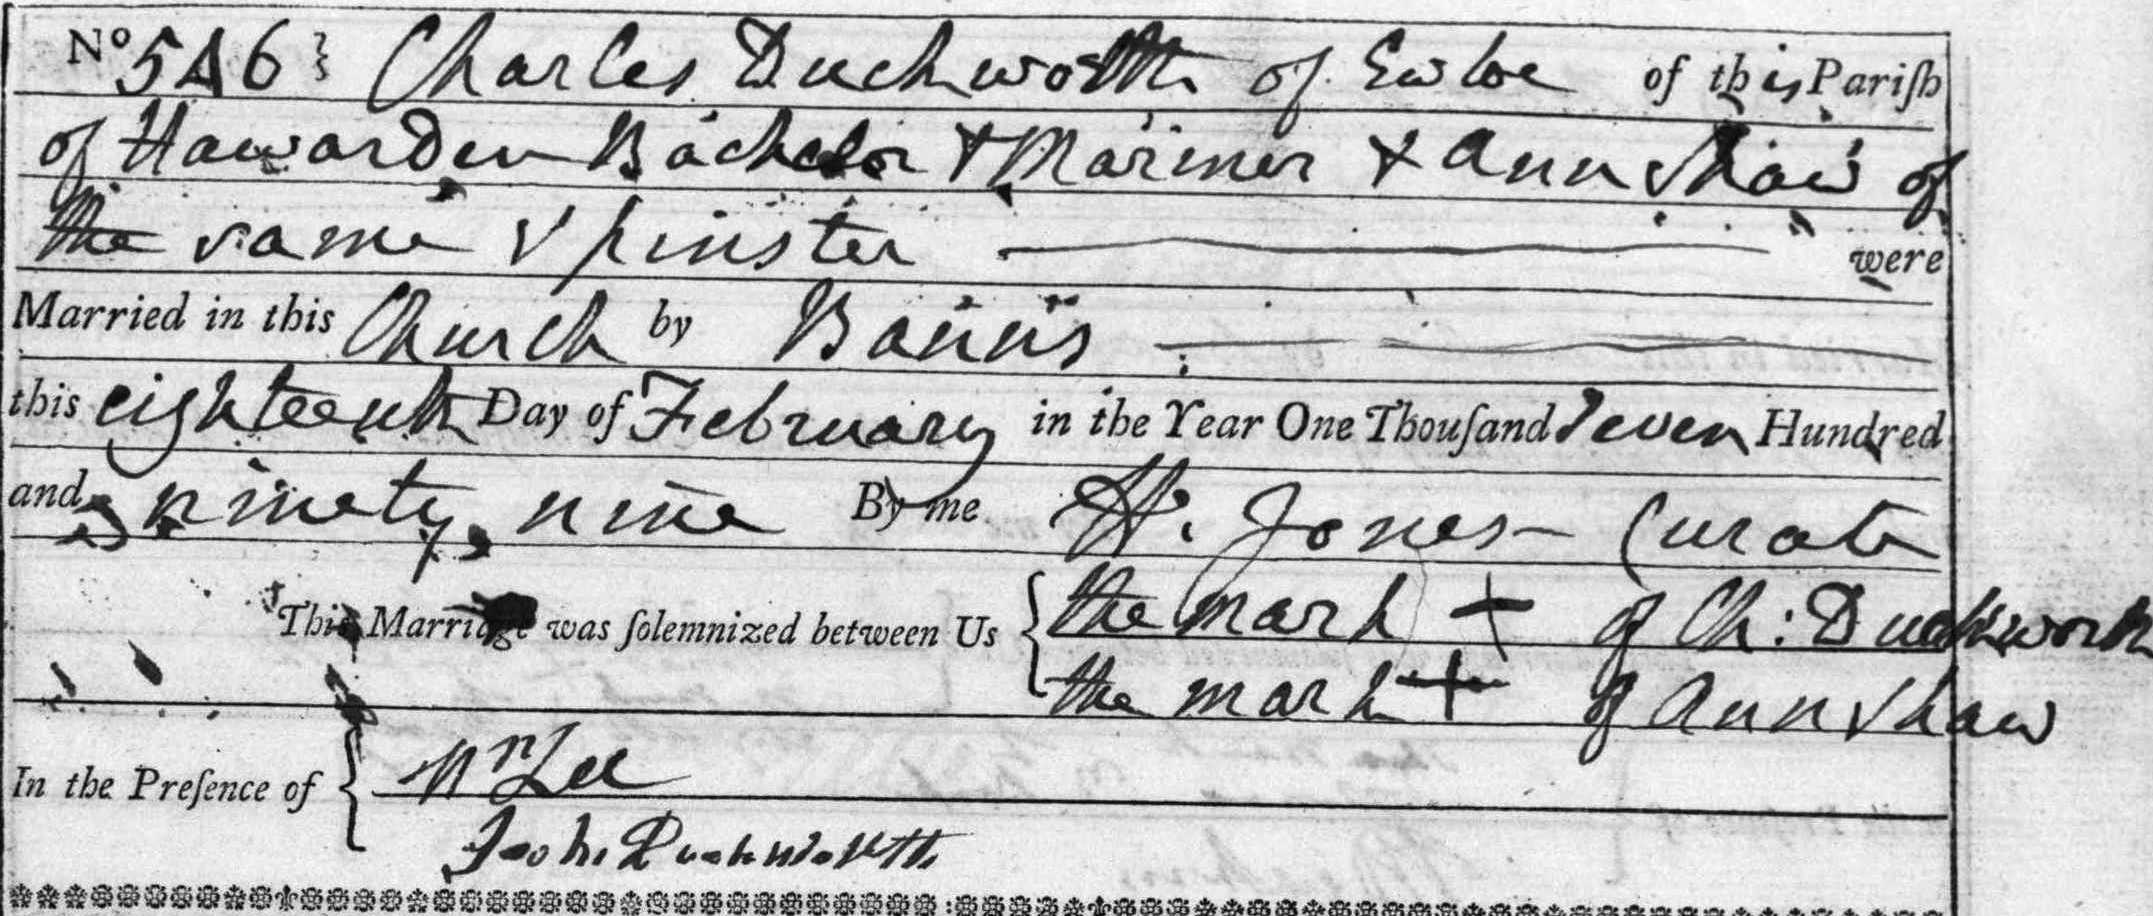 No 546} Charles Duckworth of Ewloe of this Pariſh
of Hawarden Bachelor & Mariner & Ann Shaw of
the same Spinster were
Married in this Church by Banns
this eighteenth Day of February in the Year One Thouſand Seven Hundred
and ninety nine By me W. Jones Curate
This Marriage was ſolemnized between Us { the mark + of Ch: Duckworth
the mark + of Ann Shaw
In the Preſence of { Wm Lee
John Duckworth